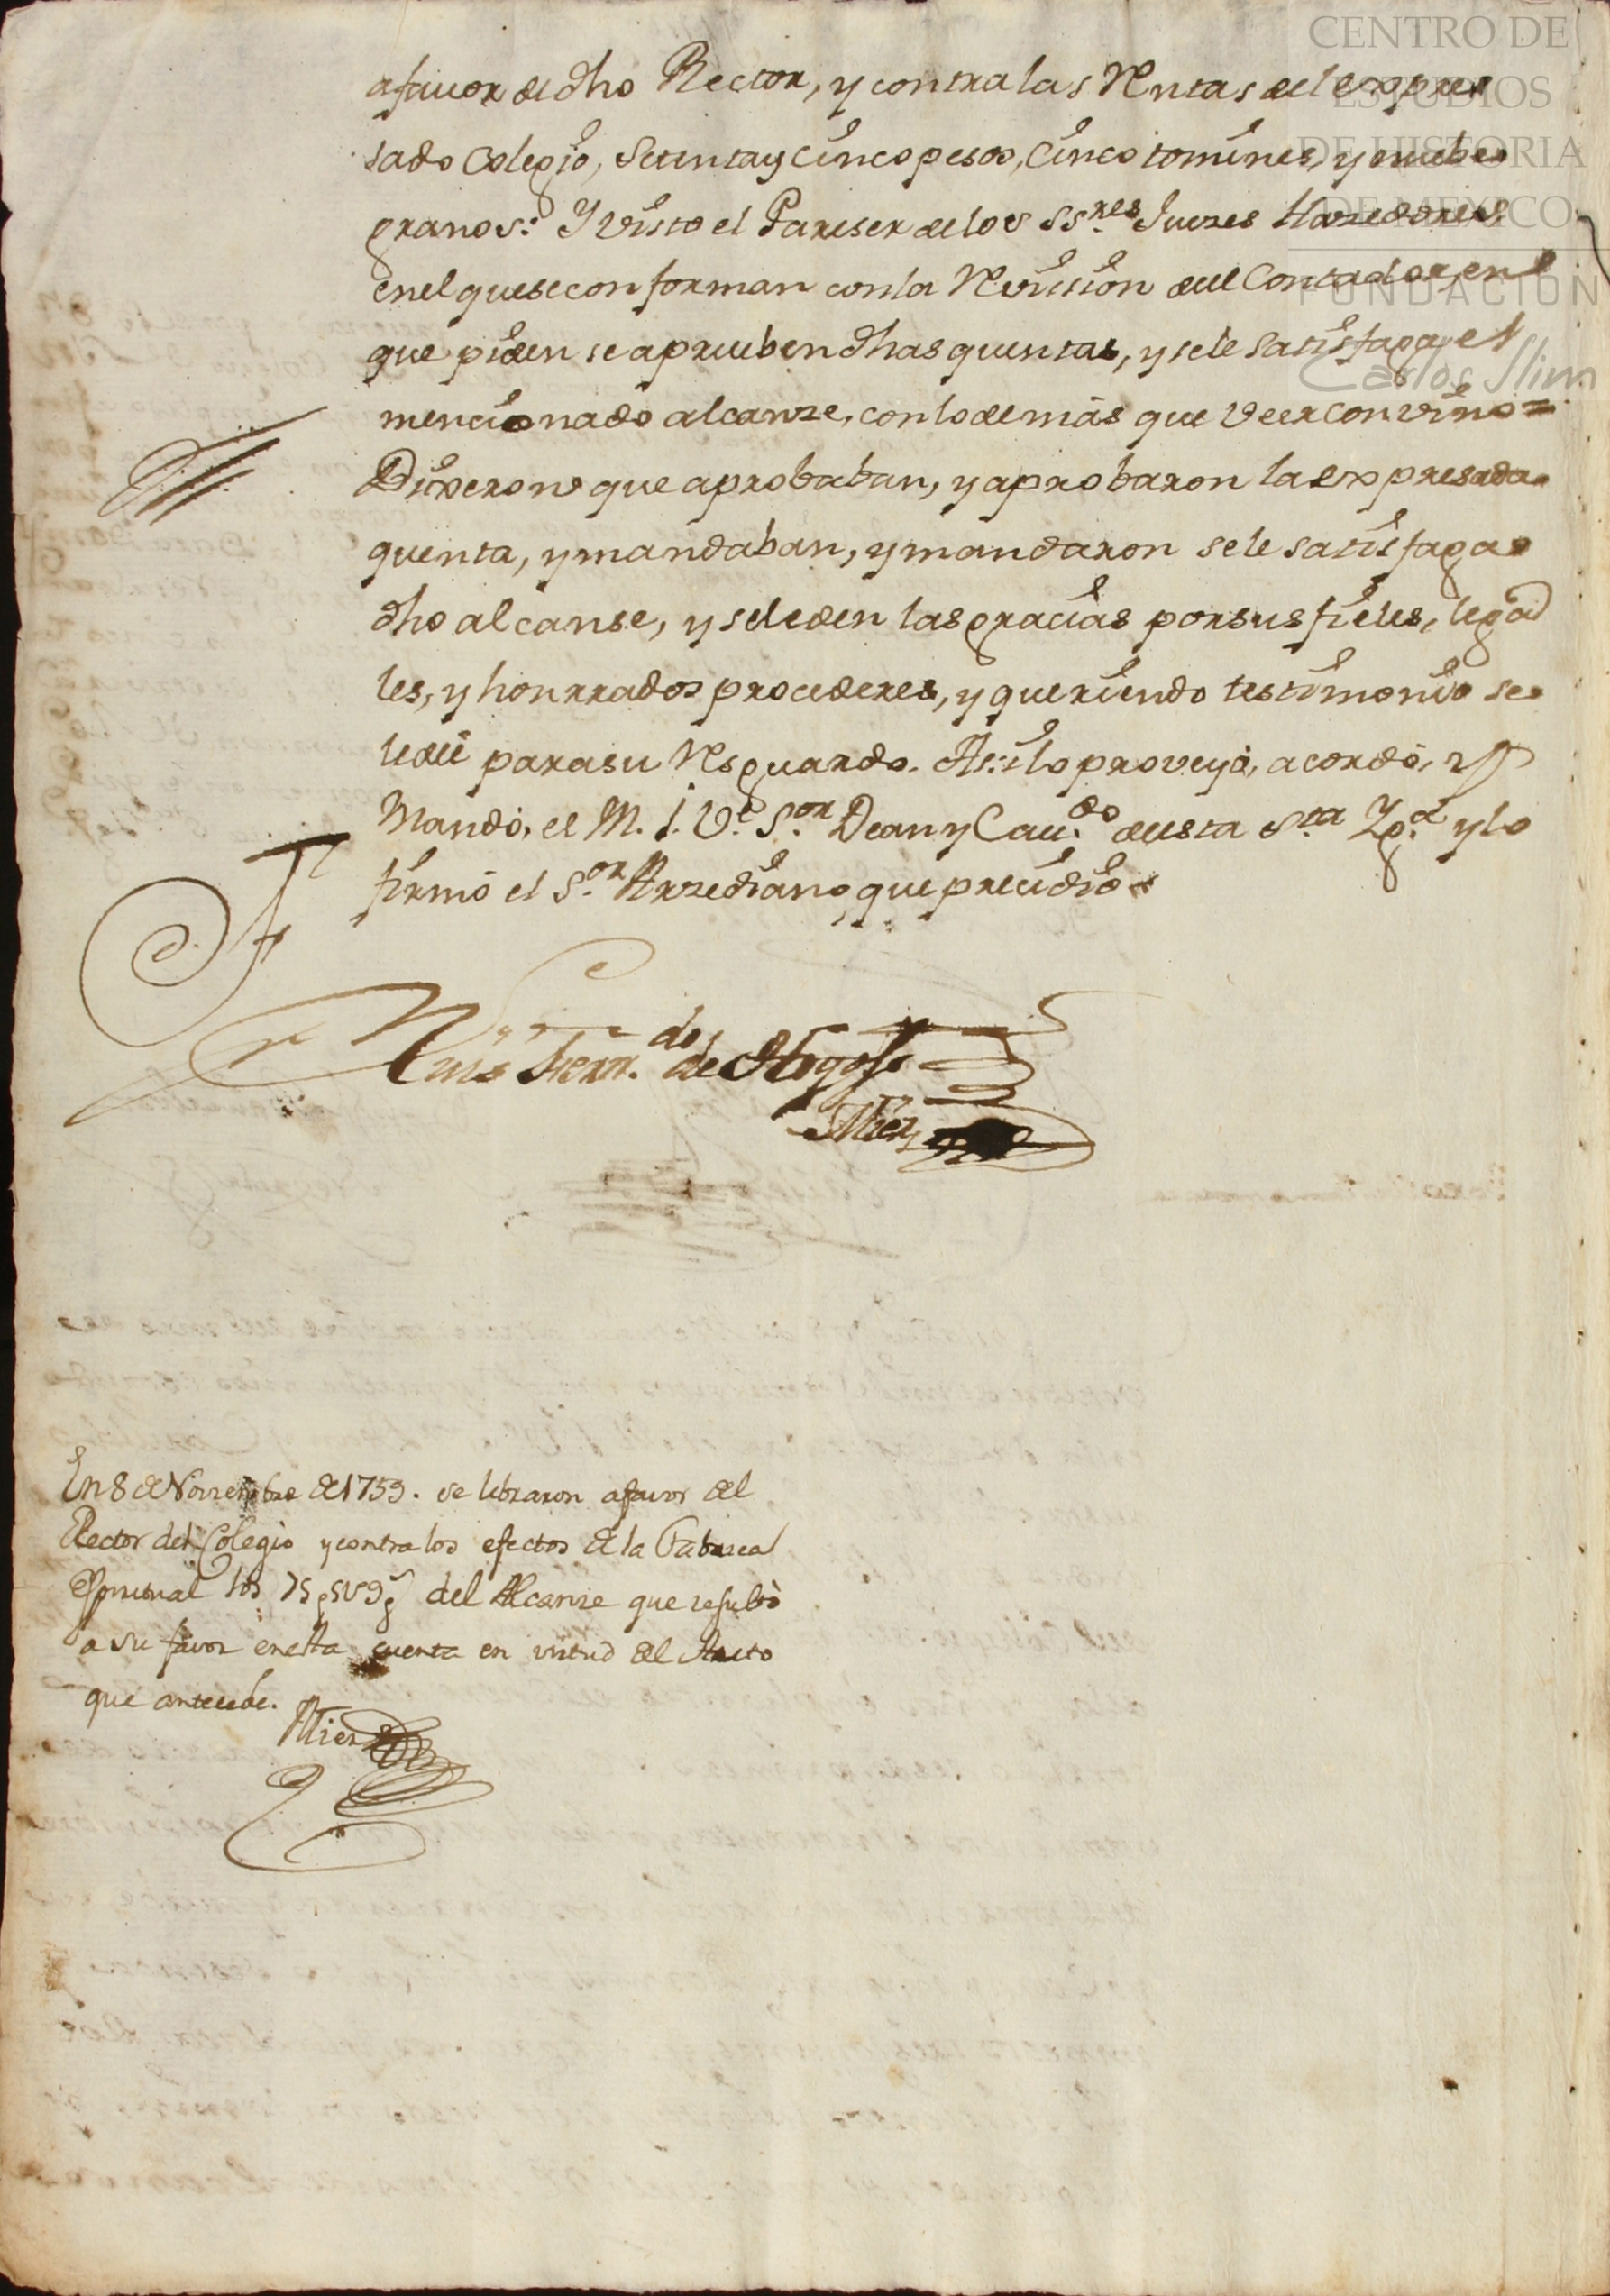 CENTRO DE
ESTUDIOS
DE HISTORIA
DE MEXICO
FUNDACION
Carlos Slim
afauor de dho Rector, y contra las Rentas del expre
sado Colegio, Setenta y Cinco pesos, Cinco tomines, y nuebe
granos: Y visto el Pareser de los SS.res Juezes Hazedores
en el que se conforman con la Revision del Contador, en
que piden se aprueben dhas quentas, y se le satisfaga el
mencionado alcanze, con lo demás que Veer convino =
Dixeron que aprobaban, y aprobaron la expresada
quenta, y mandaban, y mandaron se le satisfaga
dho alcanse, y se le den las gracias por sus fieles, lega
les, y honrrados procederes, y queriendo testimonio se
le dé para su Resguardo. Asi lo proveyó, acordó, y
Mandó, el M. I. V.e S.or Dean y Cau.do de esta S.ta Yg.a y lo
firmó el S.or Arzediano que precidió
Luis Fern.do de
Mier
En 8 de Noviembre de 1759. se libraron afavor del
Rector del Colegio y contra los efectos de la Fabrica
Espiritual los 75 p 5 U 9 g del Alcanze que resultò
a su favor en esta cuenta en virtud del Auto
que antecede.
Mier